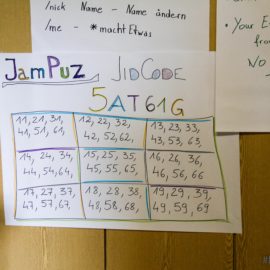 /nick Name - Name ändern
/me - *macht Etwas
• Your E
from
No
JamPuz JidCode
5AT61G
11,21,31, 12,22,32, 13,23,33,
41,51,61, 42,52,62, 43,53,63,
14,24,34, 15,25,35, 16,26,36,
44,54,64, 45,55,65, 46,56,66
17,27,37, 18,28,38, 19,29,39,
47,57,67, 48,58,68, 49,59,69